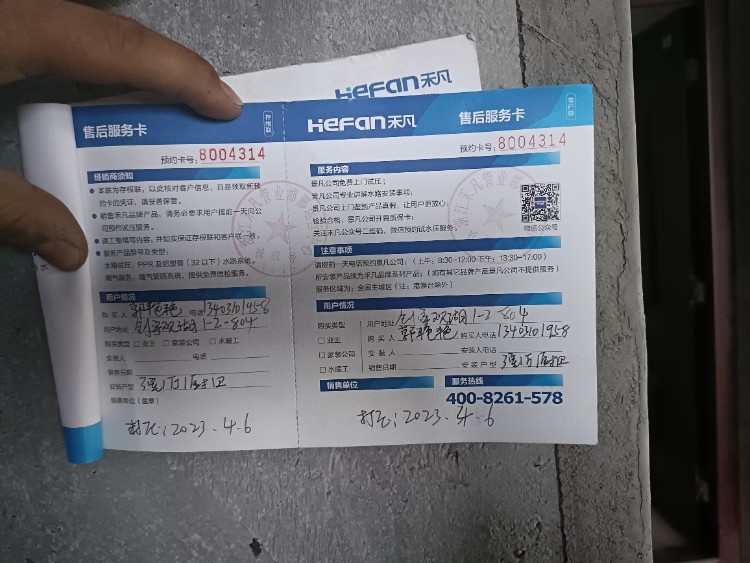 HeFan禾凡
售后服务卡
存根联
预约卡号:8004314
经销商须知
本联为存根联，以此核对客户信息，且是领取新预
约卡的凭证，请妥善保管。
销售禾凡品牌产品，请务必要求用户提前一天向公
司预约试压服务。
请工整填写内容，并如实保证存根联和客户联一致。
服务产品款号及类型:
水路试压，PPR及铝塑管（32以下）水路系统，
暖气服务，暖气管路系统，提供免费巡检服务。
用户情况
购 买 人
电话
用户地址
1-2-804
购买类型 □ 业主 □ 家装公司 □ 水暖工
安装人 电话
销售日期
安装户型
销售单位（盖章）
2023.4.6
HeFan禾凡
售后服务卡
客户联
预约卡号:8004314
服务内容
景凡公司免费上门试压；
景凡公司专业讲解水路安装事项；
景凡公司上门鉴别产品真假，让用户更放心；
验验合格，景凡公司开具质保卡；
关注禾凡公众号二维码，微信预约试水压服务。
微信公众号
注意事项
请提前一天电话预约景凡公司：（上午：8:30-12:00 下午：13:30-17:00）
所安装产品须为禾凡品牌系列产品；（如有其它品牌产品景凡公司不提供服务）
服务区域为：全国主城区（注：港澳台除外）
用户情况
购买类型 用户地址 1-2-804
□ 业主 购 买 人 购买人电话
□ 家装公司 安 装 人 安装人电话
□ 水暖工 销售日期 安 装 户 型
销售单位
服务热线
400-8261-578
2023.4.6